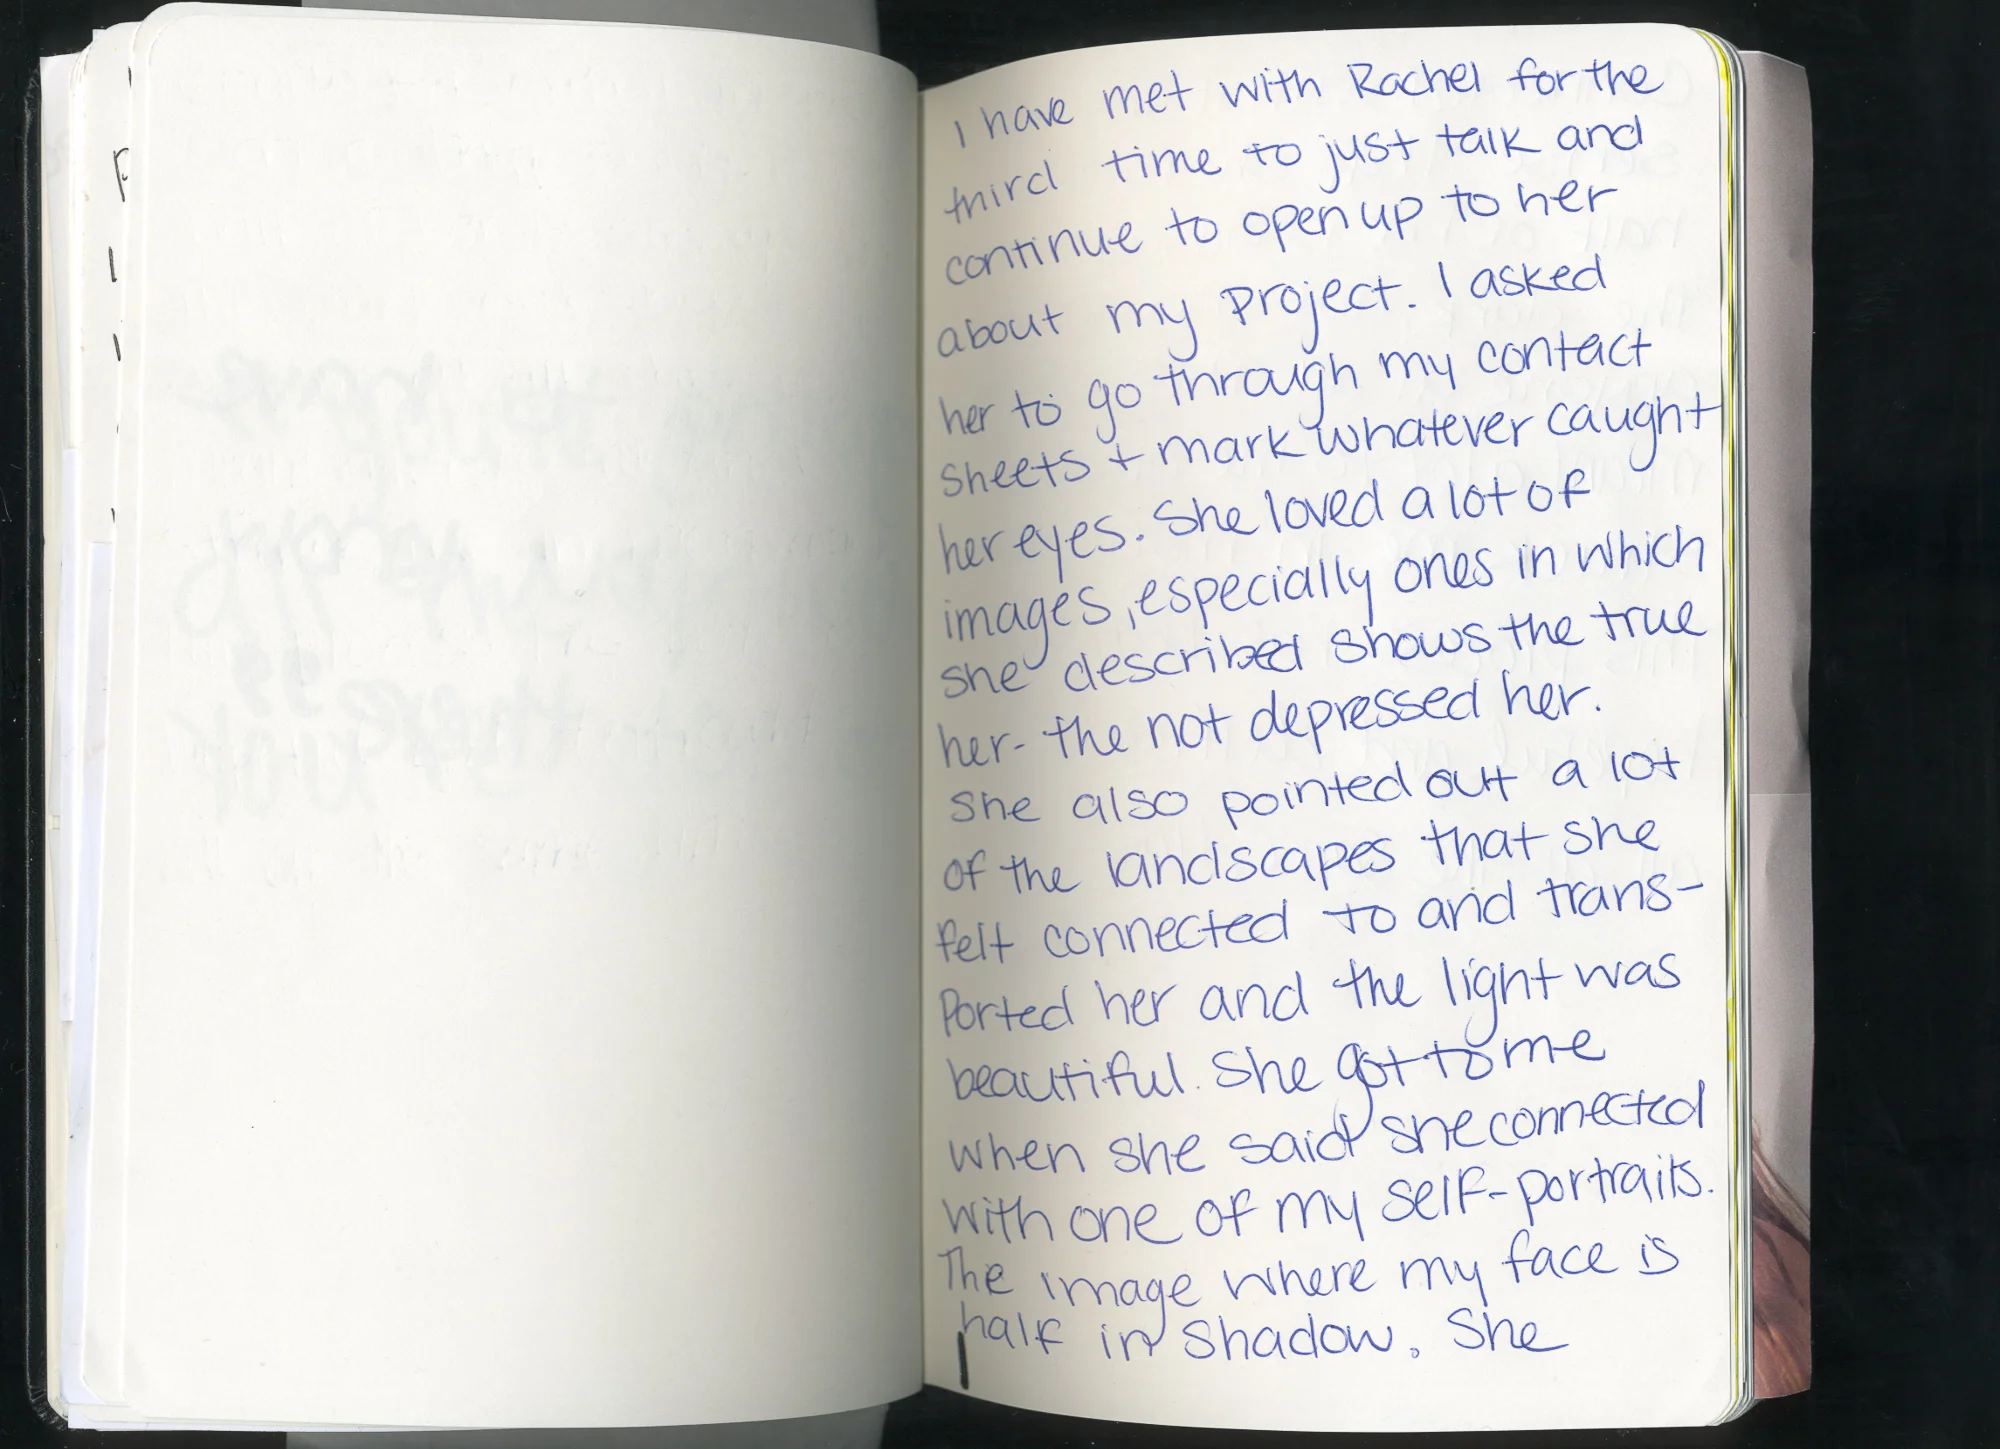 I have met with Rachel for the
third time to just talk and
continue to open up to her
about my project. I asked
her to go through my contact
sheets + mark whatever caught
her eyes. She loved a lot of
images, especially ones in which
she described shows the true
her- the not depressed her.
She also pointed out a lot
of the landscapes that she
felt connected to and trans-
ported her and the light was
beautiful. She got to me
when she said she connected
with one of my self-portraits.
The image where my face is
half in shadow. She